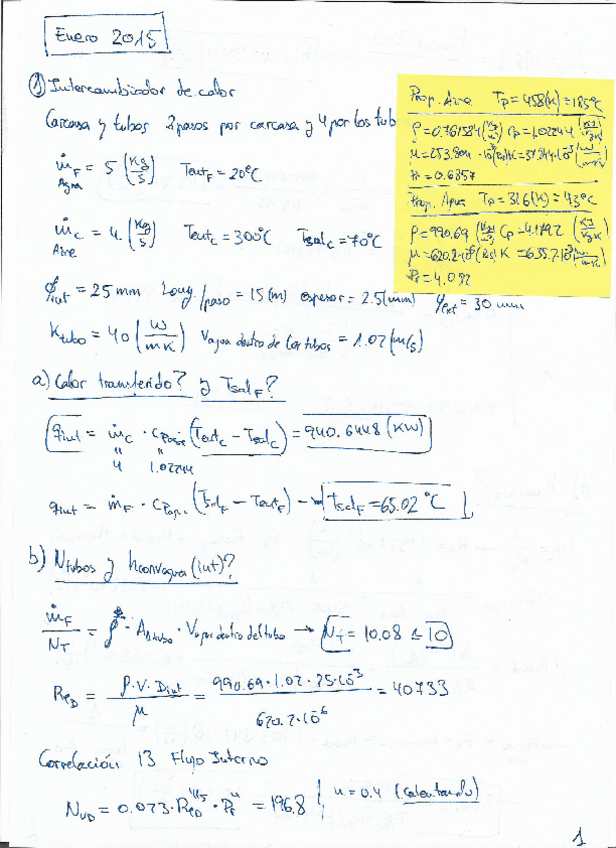 Enero 2015
① Intercambiador de calor
Carcasa y tubos 2 pasos por carcasa y 4 por los tub
ṁF = 5 (Kg/s) TentF = 20°C
Agua
ṁc = 4. (Kg/s) Tentc = 300°C Tsalc = 70°C
Aire
ϕint = 25 mm Long./paso = 15 (m) espesor = 2.5 (mm) φext = 30 mm
Ktubo = 40 (W/mK) Vagua dentro de los tubos = 1.02 (m/s)
Prop. Aire Tp = 458 (K) = 185°C
ρ = 0.761584 (Kg/m³) Cp = 1.02244 (KJ/KgK)
Pr = 0.6857
Prop. Agua Tp = 316 (K) = 43°C
ρ = 990.69 (Kg/m³) Cp = 4.1792 (KJ/KgK)
Pr = 4.092
a) Calor transferido? y TsalF?
qint = ṁc · Cpaire (Tentc - Tsalc) = 940.6448 (KW)
" "
4 1.02244
qint = ṁF · Cpagua (TsalF - TentF) → TsalF = 65.02 °C
b) Ntubos y hconvagua (int)?
ṁF/NT = ρ · A1tubo · Vagua dentro del tubo → NT = 10.08 ≃ 10
ReD = ρ·V·Dint/μ = 990.69 · 1.02 · 25·10⁻³/620.2·10⁻⁶ = 40733
Correlación 13 Flujo Interno
NuD = 0.023 · ReD^4/5 · Pr^n = 196.8 n = 0.4 (Calentando)
1